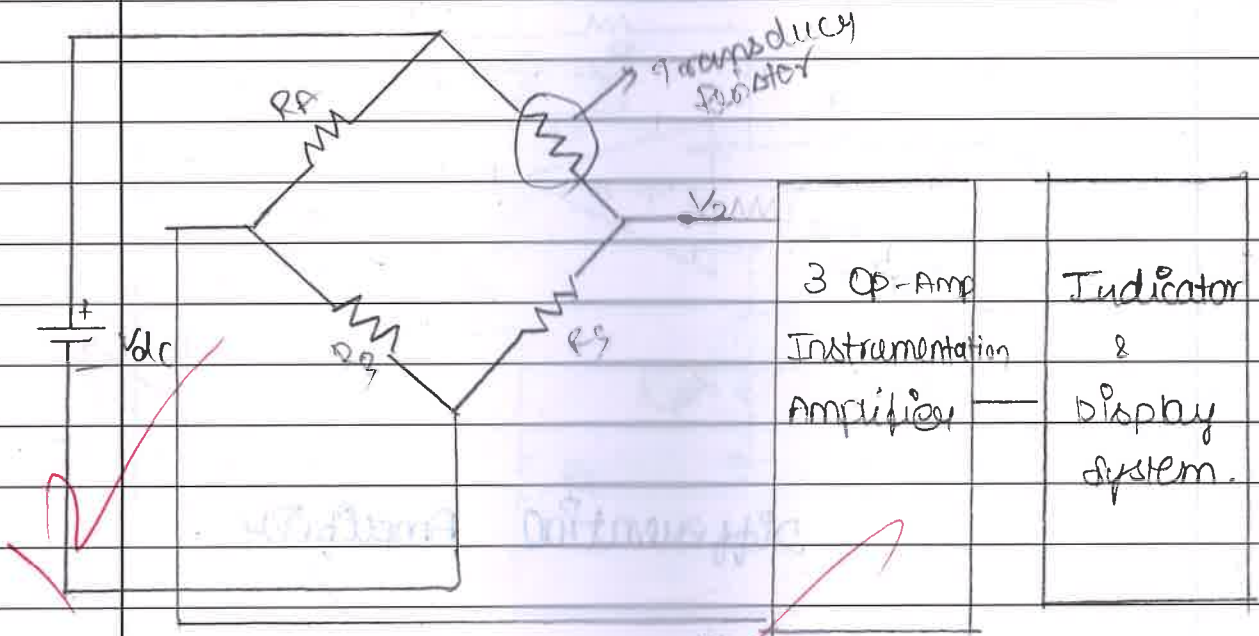 RA
Transducer
V2
Vdc
+
3 Op-Amp
Instrumentation
Amplifier
Indicator
&
Display
System.